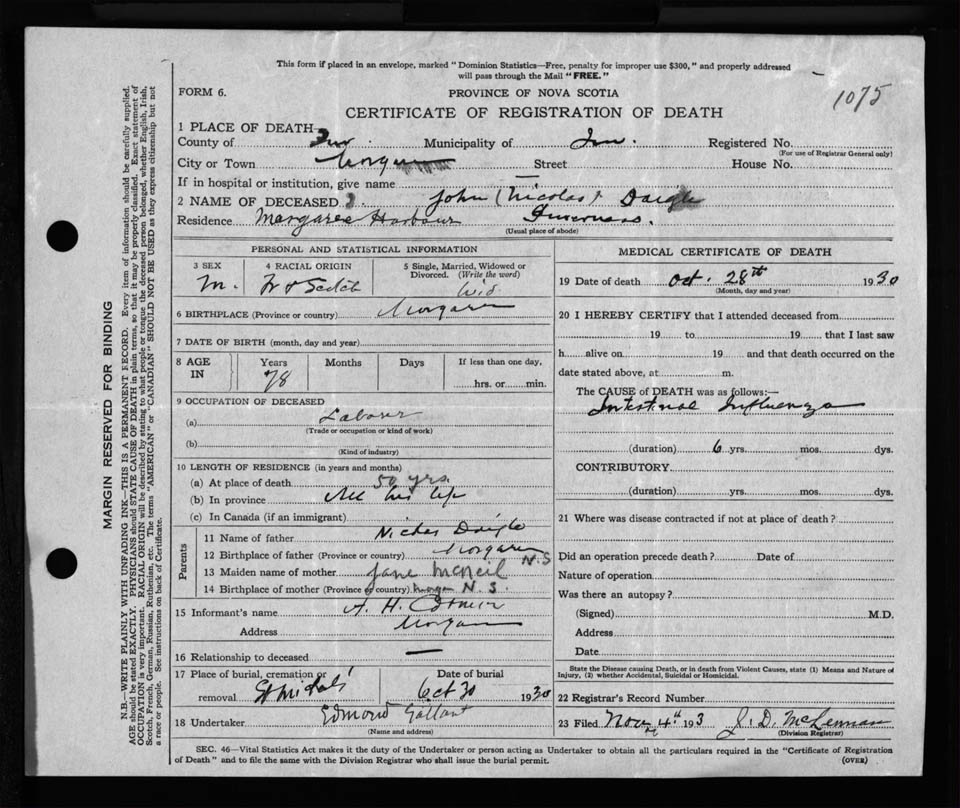 This form if placed in an envelope, marked "Dominion Statistics—Free, penalty for improper use $300," and properly addressed
will pass through the Mail "FREE."
1075
FORM 6.
PROVINCE OF NOVA SCOTIA
CERTIFICATE OF REGISTRATION OF DEATH
1 PLACE OF DEATH—
County of Inv. Municipality of Inv. Registered No.
(For use of Registrar General only)
City or Town Street House No.
If in hospital or institution, give name —
2 NAME OF DECEASED John (Nicolas) Daigle
Residence Margaree Harbour Inverness.
(Usual place of abode)
PERSONAL AND STATISTICAL INFORMATION
3 SEX
M.
4 RACIAL ORIGIN
Fr & Scotch
5 Single, Married, Widowed or
Divorced. (Write the word)
Wid
6 BIRTHPLACE (Province or country) Margaree
7 DATE OF BIRTH (month, day and year)
8 AGE IN
Years Months Days If less than one day,
78
hrs. or min.
9 OCCUPATION OF DECEASED
(a) Labour
(Trade or occupation or kind of work)
(b)
(Kind of industry)
10 LENGTH OF RESIDENCE (in years and months)
(a) At place of death 50 yrs.
(b) In province All his life
(c) In Canada (if an immigrant)
Parents
11 Name of father Daigle
12 Birthplace of father (Province or country) Margaree N.S
13 Maiden name of mother Jane McNeil
14 Birthplace of mother (Province or country) N.S.
15 Informant's name A. H.
Address Margaree
16 Relationship to deceased —
17 Place of burial, cremation or
removal St Michals
Date of burial
Oct 30 1930
18 Undertaker Edmond Gallant
(Name and address)
MEDICAL CERTIFICATE OF DEATH
19 Date of death Oct. 28th 1930
(Month, day and year)
20 I HEREBY CERTIFY that I attended deceased from
19 to 19 that I last saw
h alive on 19 and that death occurred on the
date stated above, at m.
The CAUSE of DEATH was as follows:—
Intestinal Influenza
(duration) 6 yrs. mos. dys.
CONTRIBUTORY
(duration) yrs. mos. dys.
21 Where was disease contracted if not at place of death?
Did an operation precede death? Date of
Nature of operation
Was there an autopsy?
(Signed) M.D.
Address
Date
State the Disease causing Death, or in death from Violent Causes, state (1) Means and Nature of
Injury, (2) whether Accidental, Suicidal or Homicidal.
22 Registrar's Record Number
23 Filed Nov 4th 193 J. D. McLennan
(Division Registrar)
SEC. 46—Vital Statistics Act makes it the duty of the Undertaker or person acting as Undertaker to obtain all the particulars required in the "Certificate of Registration
of Death" and to file the same with the Division Registrar who shall issue the burial permit.
(OVER)
MARGIN RESERVED FOR BINDING
N.B.—WRITE PLAINLY WITH UNFADING INK—THIS IS A PERMANENT RECORD. Every item of information should be carefully supplied.
AGE should be stated EXACTLY. PHYSICIANS should STATE CAUSE OF DEATH in plain terms, so that it may be properly classified. Exact statement of
OCCUPATION is very important. RACIAL ORIGIN will be described by stating to what people or tongue the deceased person belonged, whether English, Irish,
Scotch, French, German, Russian, Ruthenian, etc. The terms "AMERICAN" or "CANADIAN" SHOULD NOT BE USED as they express citizenship but not
a race or people. See instructions on back of Certificate.